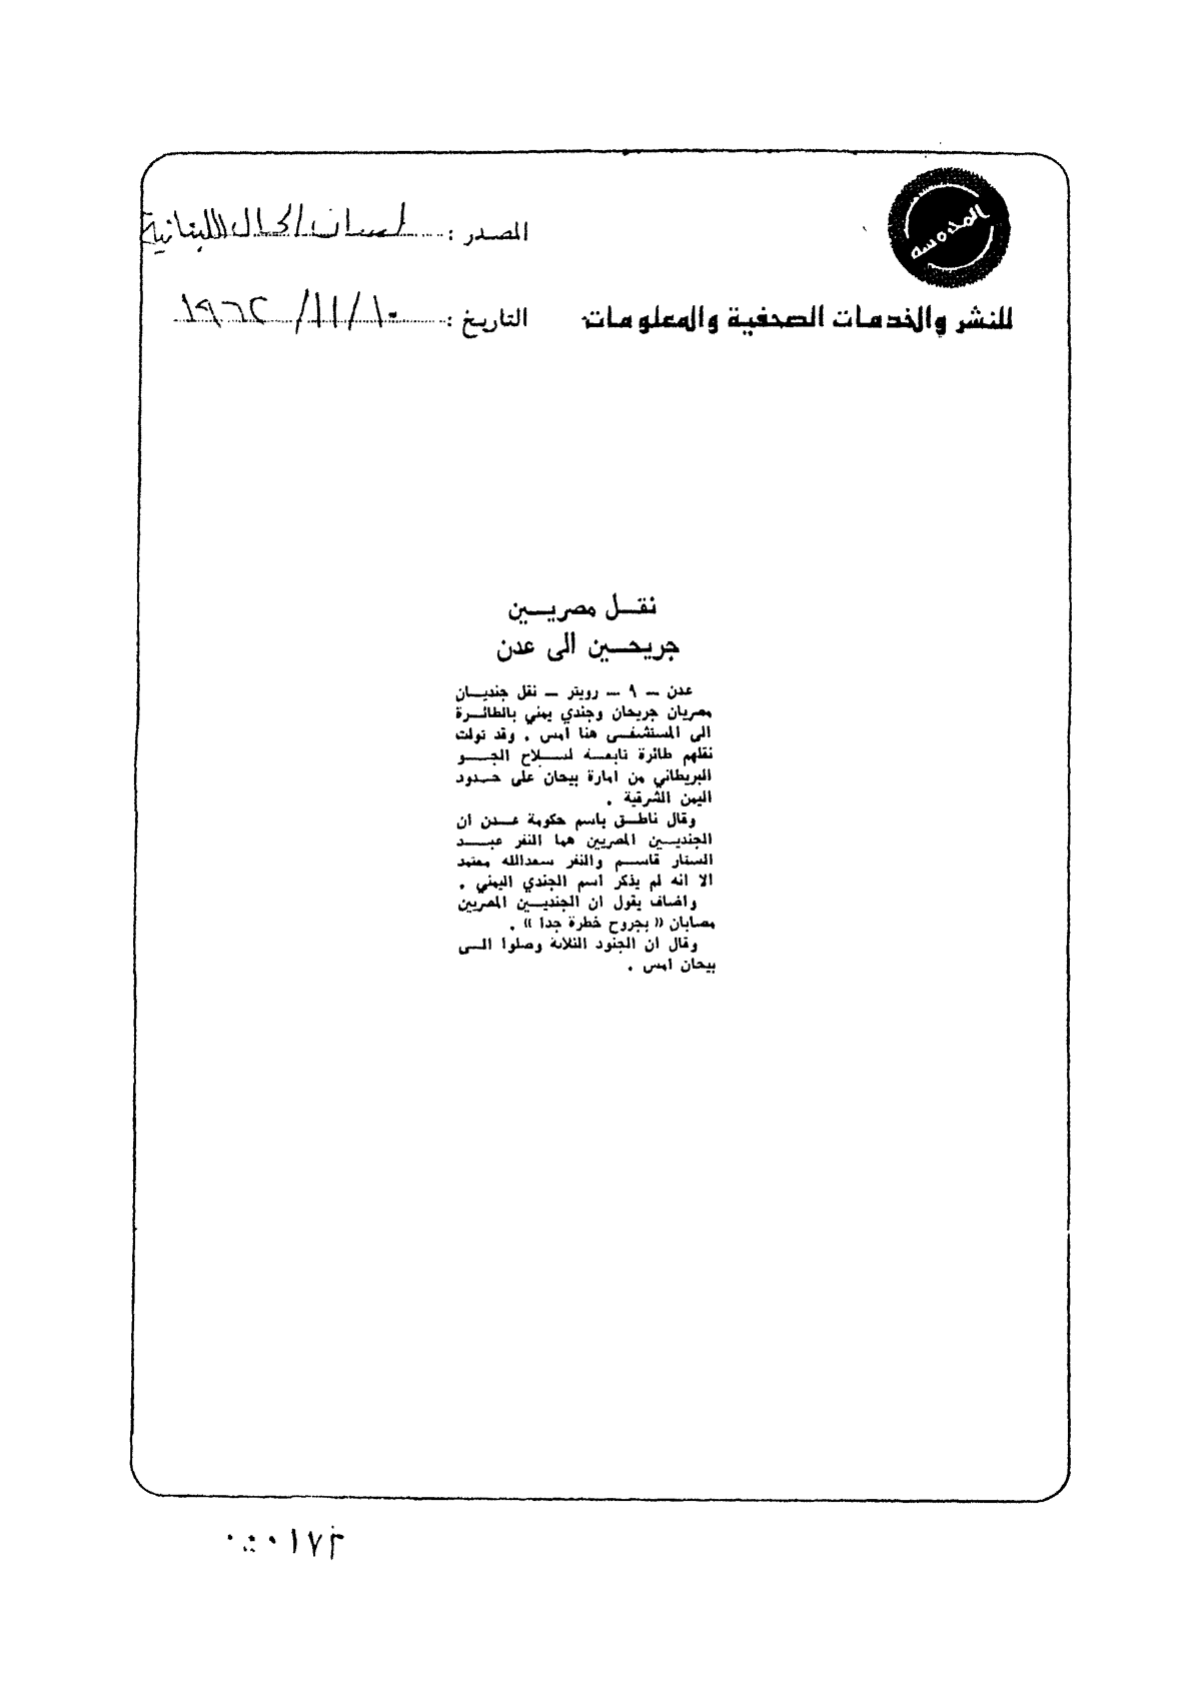 المدوسه
المصدر : لسان الحال اللبنانية
للنشر والخدمات الصحفية والمعلومات
التاريخ : ١٩٦٢/١١/١٠
نقـــل مصريـــين
جريحـــين الى عدن
عدن ـ ٩ ـ رويتر ـ نقل جنديـــان
مصريان جريحان وجندي يمني بالطائـــرة
الى المستشفـــى هنا امس . وقد تولت
نقلهم طائرة تابعـــة لســـلاح الجـــو
البريطاني من امارة بيحان على حـــدود
اليمن الشرقية .
وقال ناطـــق باسم حكومة عـــدن ان
الجنديـــين المصريين هما النفر عبـــد
الستار قاســـم والنفر سعدالله معتمد
الا انه لم يذكر اسم الجندي اليمني .
واضاف يقول ان الجنديـــين المصريين
مصابان « بجروح خطرة جدا » .
وقال ان الجنود الثلاثة وصلوا الـــى
بيحان امس .